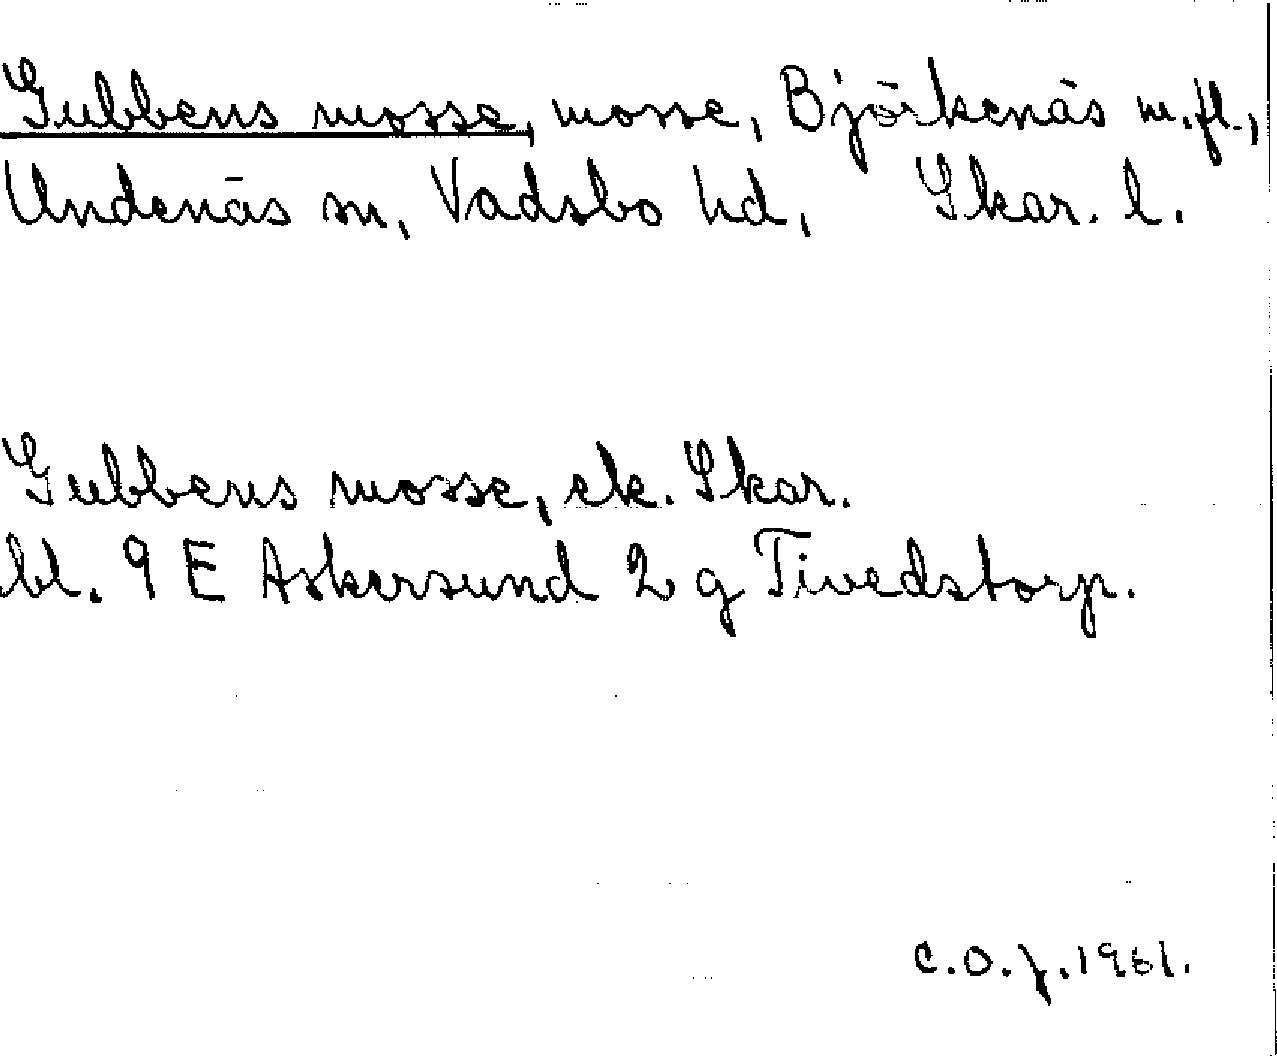 Gubbens mosse, mosse, Björkenäs m.fl.,
Undenäs sn, Vadsbo hd, Skar. l.
Gubbens mosse, ek. Skar.
bl. 9 E Askersund 2 g Tivedstorp.
C.O.J. 1961.